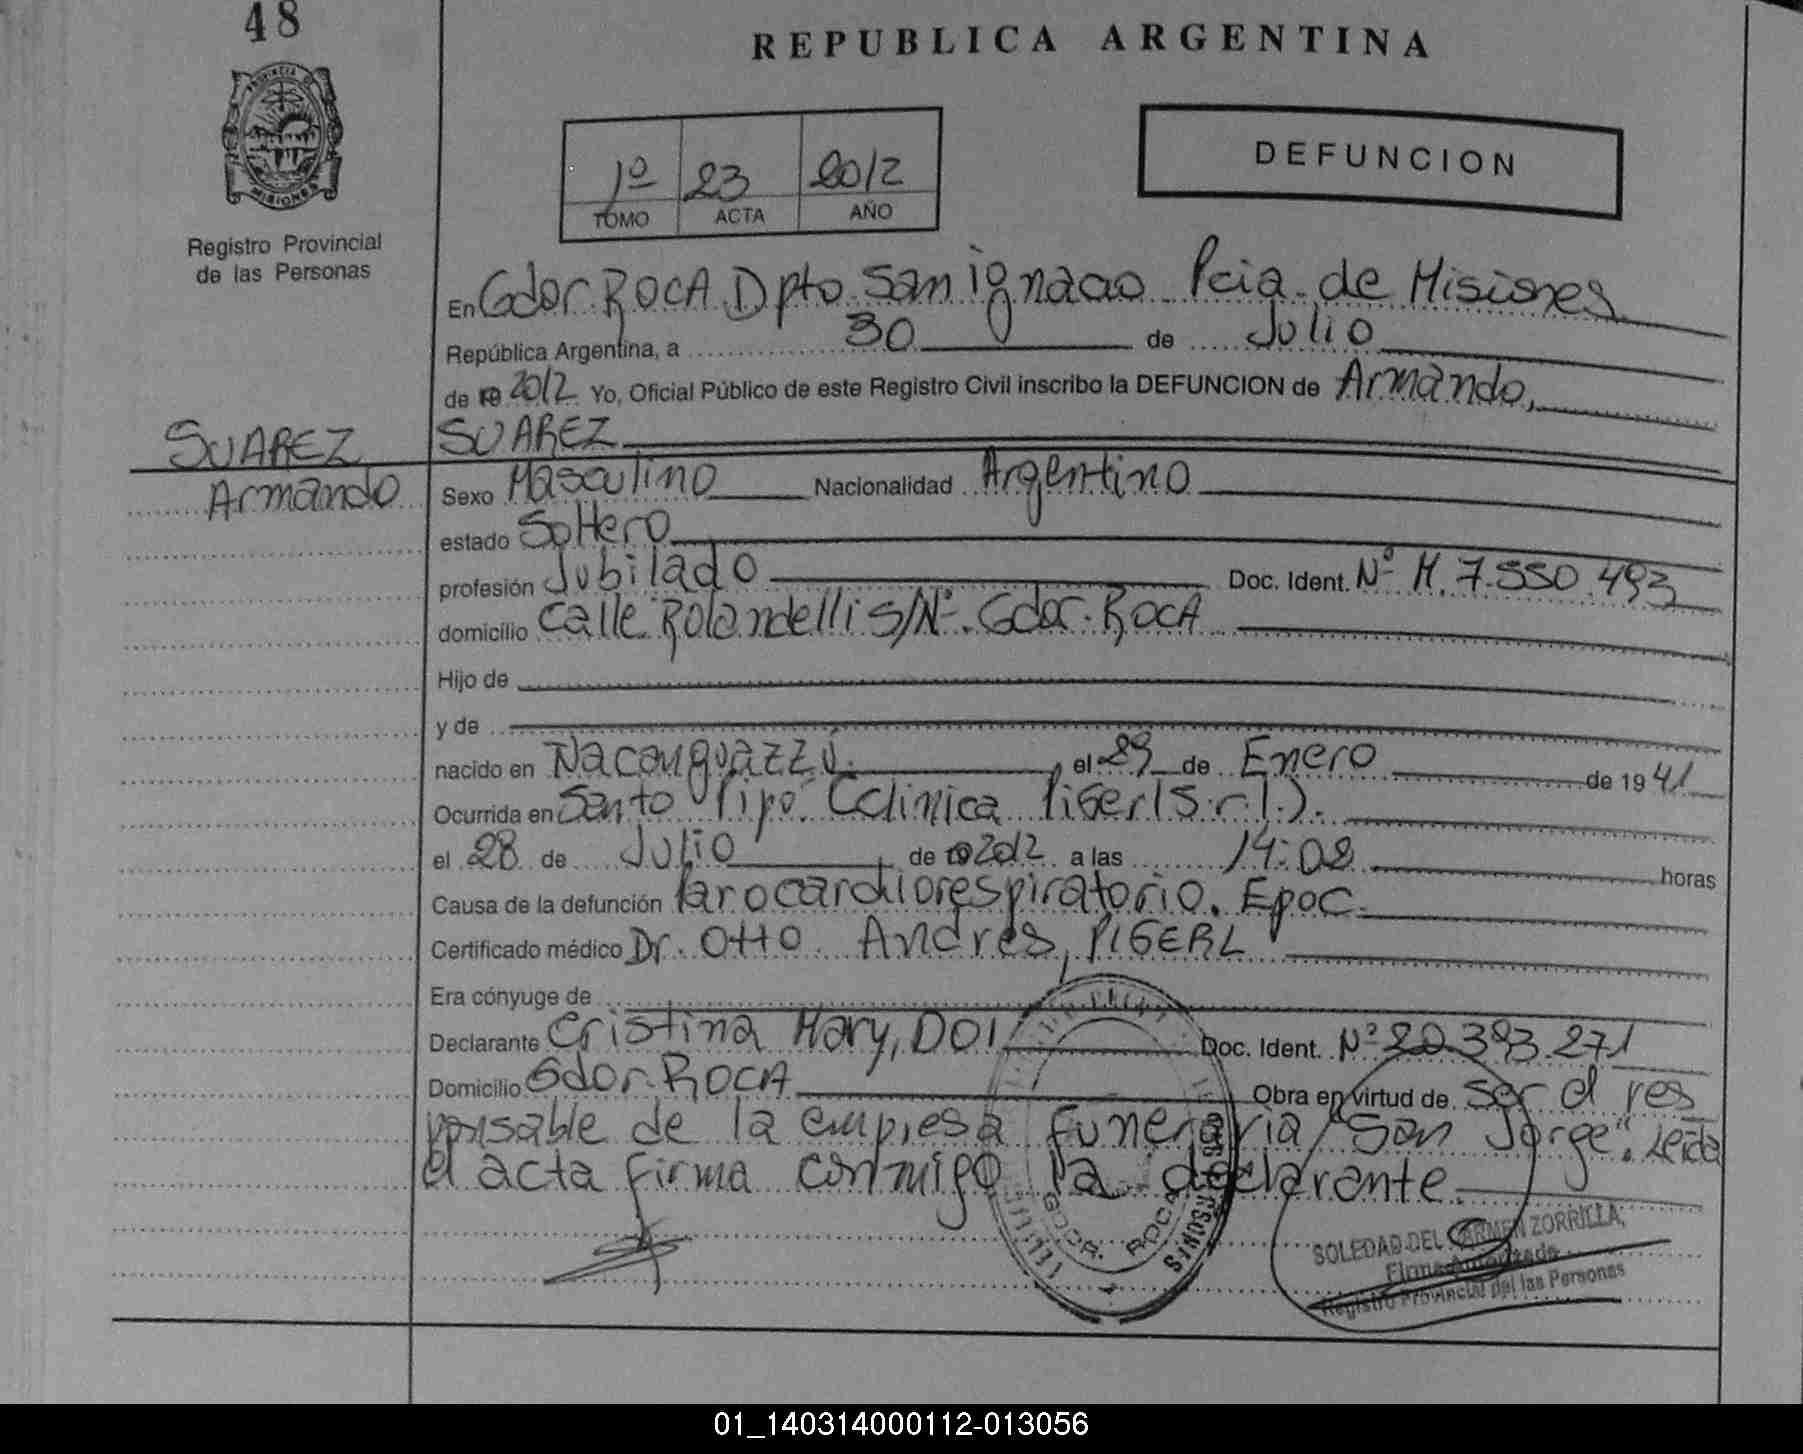 48
REPUBLICA ARGENTINA
PROVINCIA DE
MISIONES
Registro Provincial
de las Personas
1º 23 2012
TOMO ACTA AÑO
DEFUNCION
En Gdor. ROCA Dpto San ignacio Pcia. de Misiones
República Argentina, a 30 de Julio
de 19 2012 Yo, Oficial Público de este Registro Civil inscribo la DEFUNCION de Armando,
SUAREZ
SUAREZ
Armando
Sexo Masculino Nacionalidad Argentino
estado Soltero
profesión Jubilado Doc. Ident. Nº M. 7.550.493
domicilio calle Rolandelli S/Nº. Gdor. ROCA
Hijo de
y de
nacido en Ñacanguazzú. el 29 de Enero de 1941
Ocurrida en Santo Pipo. (clinica Piger(S.r.l.).
el 28 de Julio de 19 2012 a las 14:02 horas
Causa de la defunción Parocardiorespiratorio. Epoc.
Certificado médico Dr. Otto Andres, PIGERL
Era cónyuge de
Declarante Cristina Mary, DOI Doc. Ident. Nº 20.393.271
Domicilio Gdor. ROCA Obra en virtud de ser el res
ponsable de la empresa funeraria "San Jorge". Leida
el acta firma conmigo la declarante.
GDOR. ROCA
SOLEDAD DEL CARMEN ZORRILLA
Firma Autorizada
Registro Provincial del las Personas
01_140314000112-013056